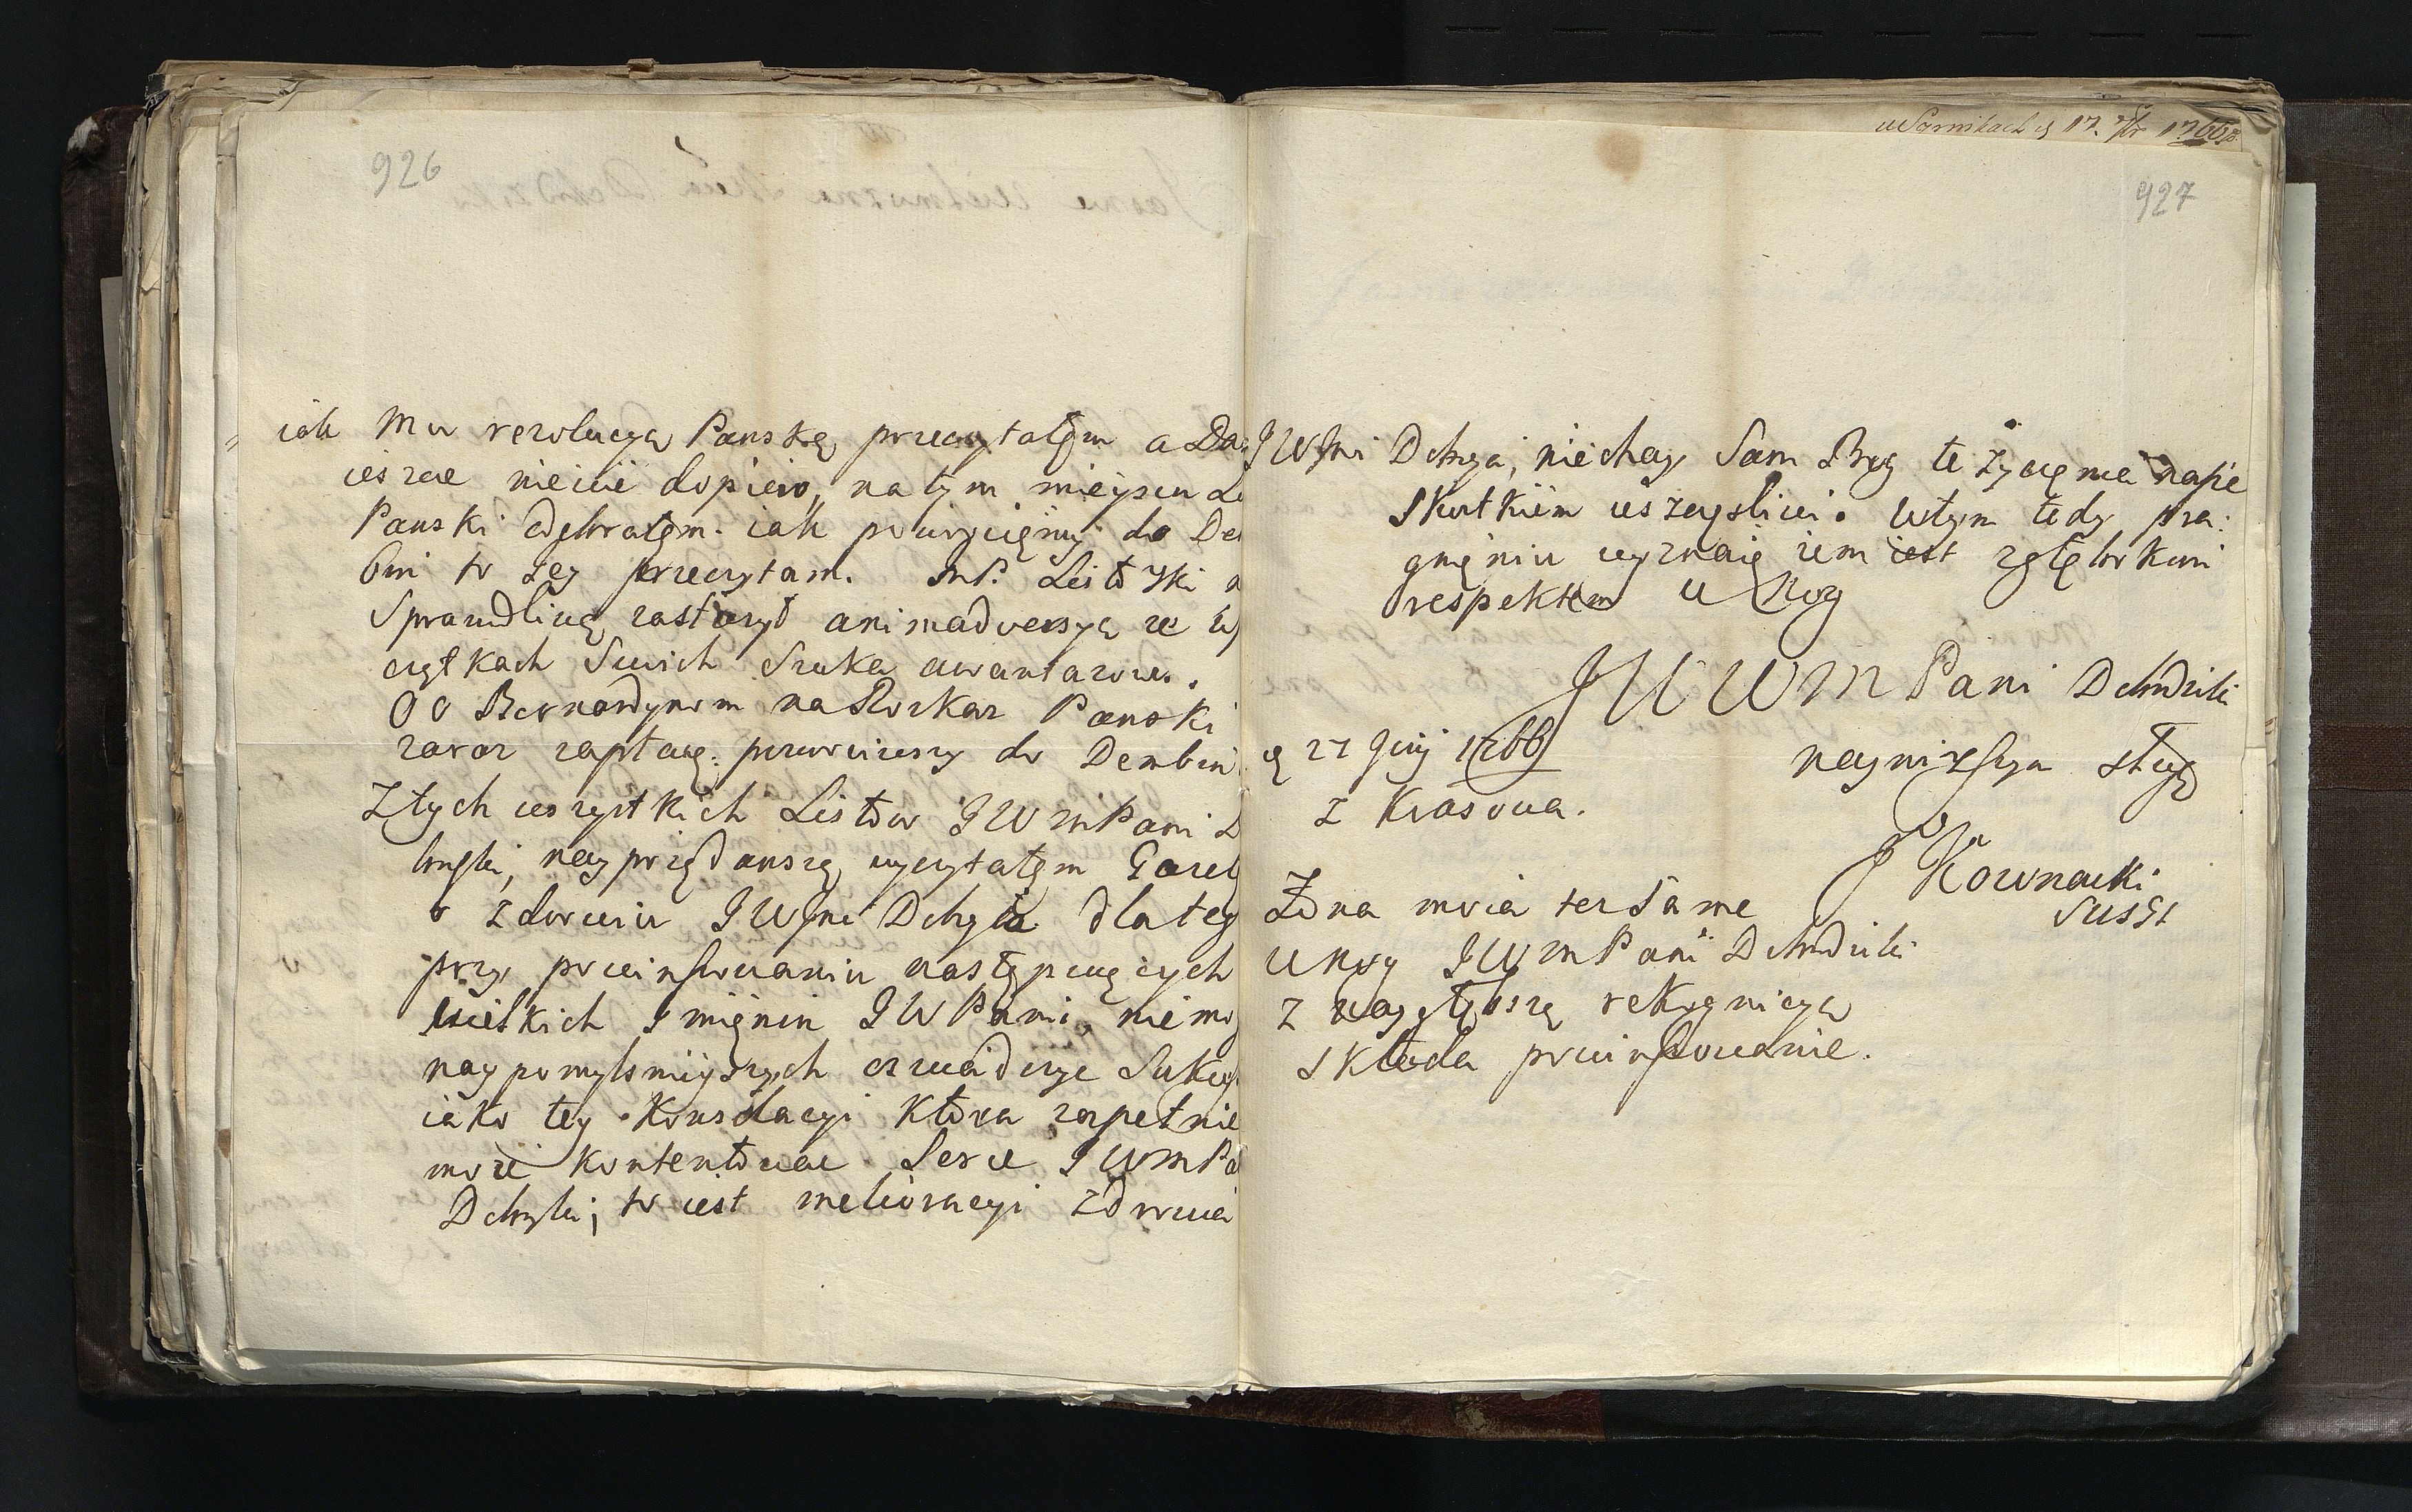 926
iak Mu rezolucyą Panską przeczytałęm a
ieszcze nie iuż dopiero, na tym mieyscu
Panski Odebrałęm. iak powrocięmy do De
bni to Jey przeczytam. JmP. Listoski
Sprawdliwą zasłużył animadversyą ze
czytkach Swoich Szuka awantarow.
OO Bernardynom na Rozkaz Panski
zaraz zapłacę. powrociwszy do Dembin
Z tych wszystkich Listow JWmPani D
brofki, nayporządanszą wyczytałęm
o zdrowiu JWJmci Dobrja dla teg
przy powinszowaniu następuiących
wielkich Imięnin JWPani, nie mo
naypomyslnieyszych oswiadczyc
iako tey Konsolacyi Ktora zupełnie
może kontentować Serce JWmPa
Dobrofki, to iest melioracyi zdrowia
w Sernikach d 17. 7br 1766
927
JWJmci Dobrja, niechay Sam Bog te życzęnia
Skutkiem uszczęsliwi. w tym tedy pra:
gnięniu wyznaię żem iest z głębokim
respektem u Nog
JWWM Pani Dobrodziki
naynizszym sługą
d 27 Junj 1766
z Krasowa.
J Kownacki
Żona moia też same
u Nog JWmPani Dobrodziki
z naygłębszą rekognicyą
Składa powinszowanie.